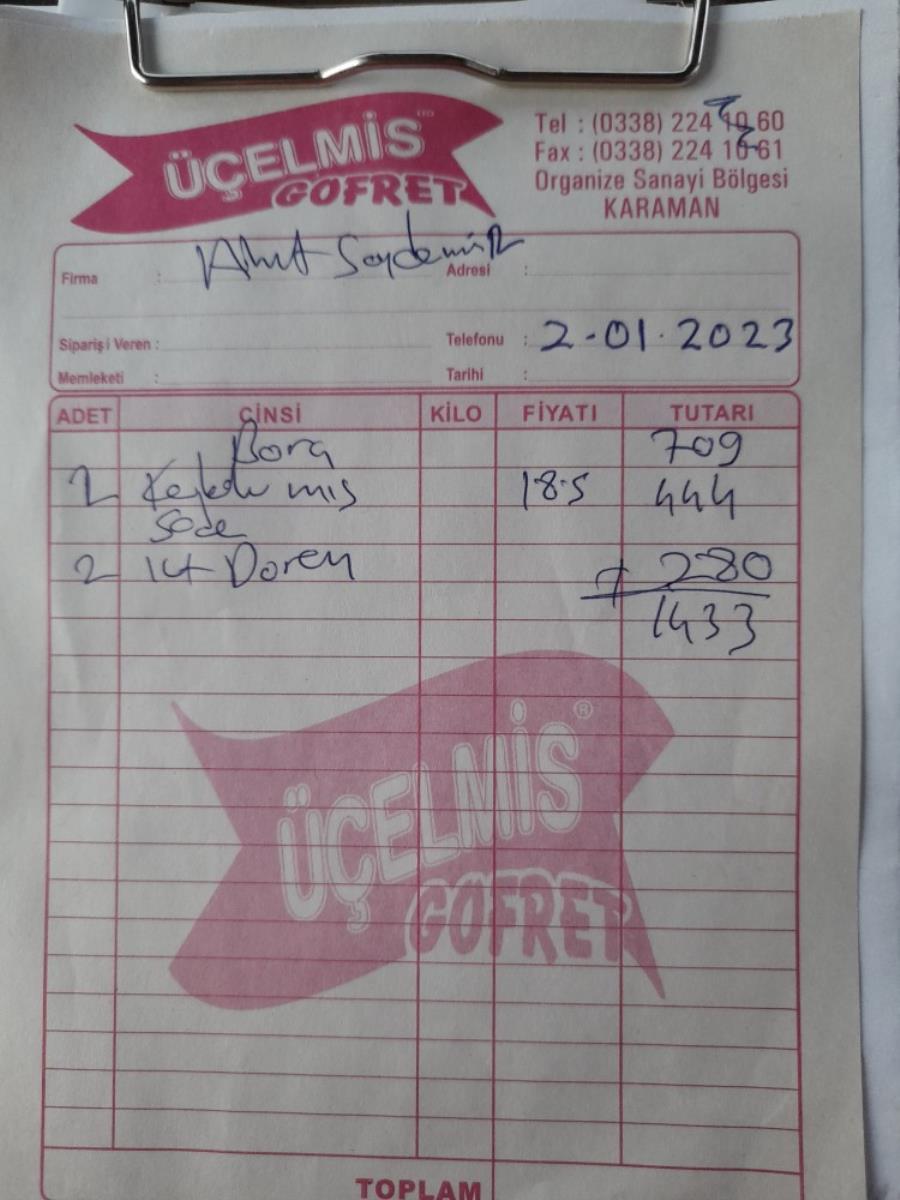 ÜÇELMİS
GOFRET
Tel : (0338) 224 10 60
Fax : (0338) 224 10 61
Organize Sanayi Bölgesi
KARAMAN
Firma :
Adresi :
Siparişi Veren :
Telefonu : 2-01-2023
Memleketi :
Tarihi :
ADET CİNSİ KİLO FİYATI TUTARI
709
2 18.5 444
Sade
2 + 280
1433
ÜÇELMİS®
GOFRET
TOPLAM